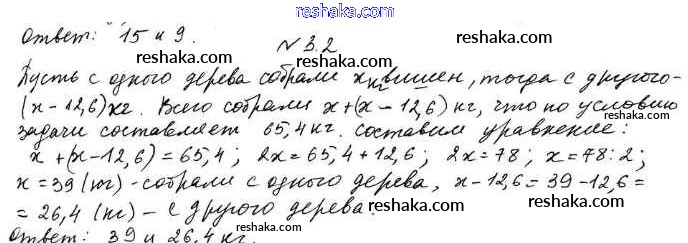 Ответ: 15 и 9.
reshaka.com
reshaka.com
№ 3.2
reshaka.com
Пусть с одного дерева собрали x кг вишен, тогда с другого -
(x - 12,6) кг. Всего собрали x + (x - 12,6) кг, что по условию
reshaka.com
reshaka.com
reshaka.com
задачи составляет 65,4 кг. составим уравнение:
x + (x - 12,6) = 65,4; 2x = 65,4 + 12,6; 2x = 78; x = 78 : 2;
reshaka.com
reshaka.com
reshaka.com
x = 39 (кг) - собрали с одного дерева, x - 12,6 = 39 - 12,6 =
= 26,4 (кг) - с другого дерева.
reshaka.com
reshaka.com
Ответ: 39 и 26,4 кг.
reshaka.com